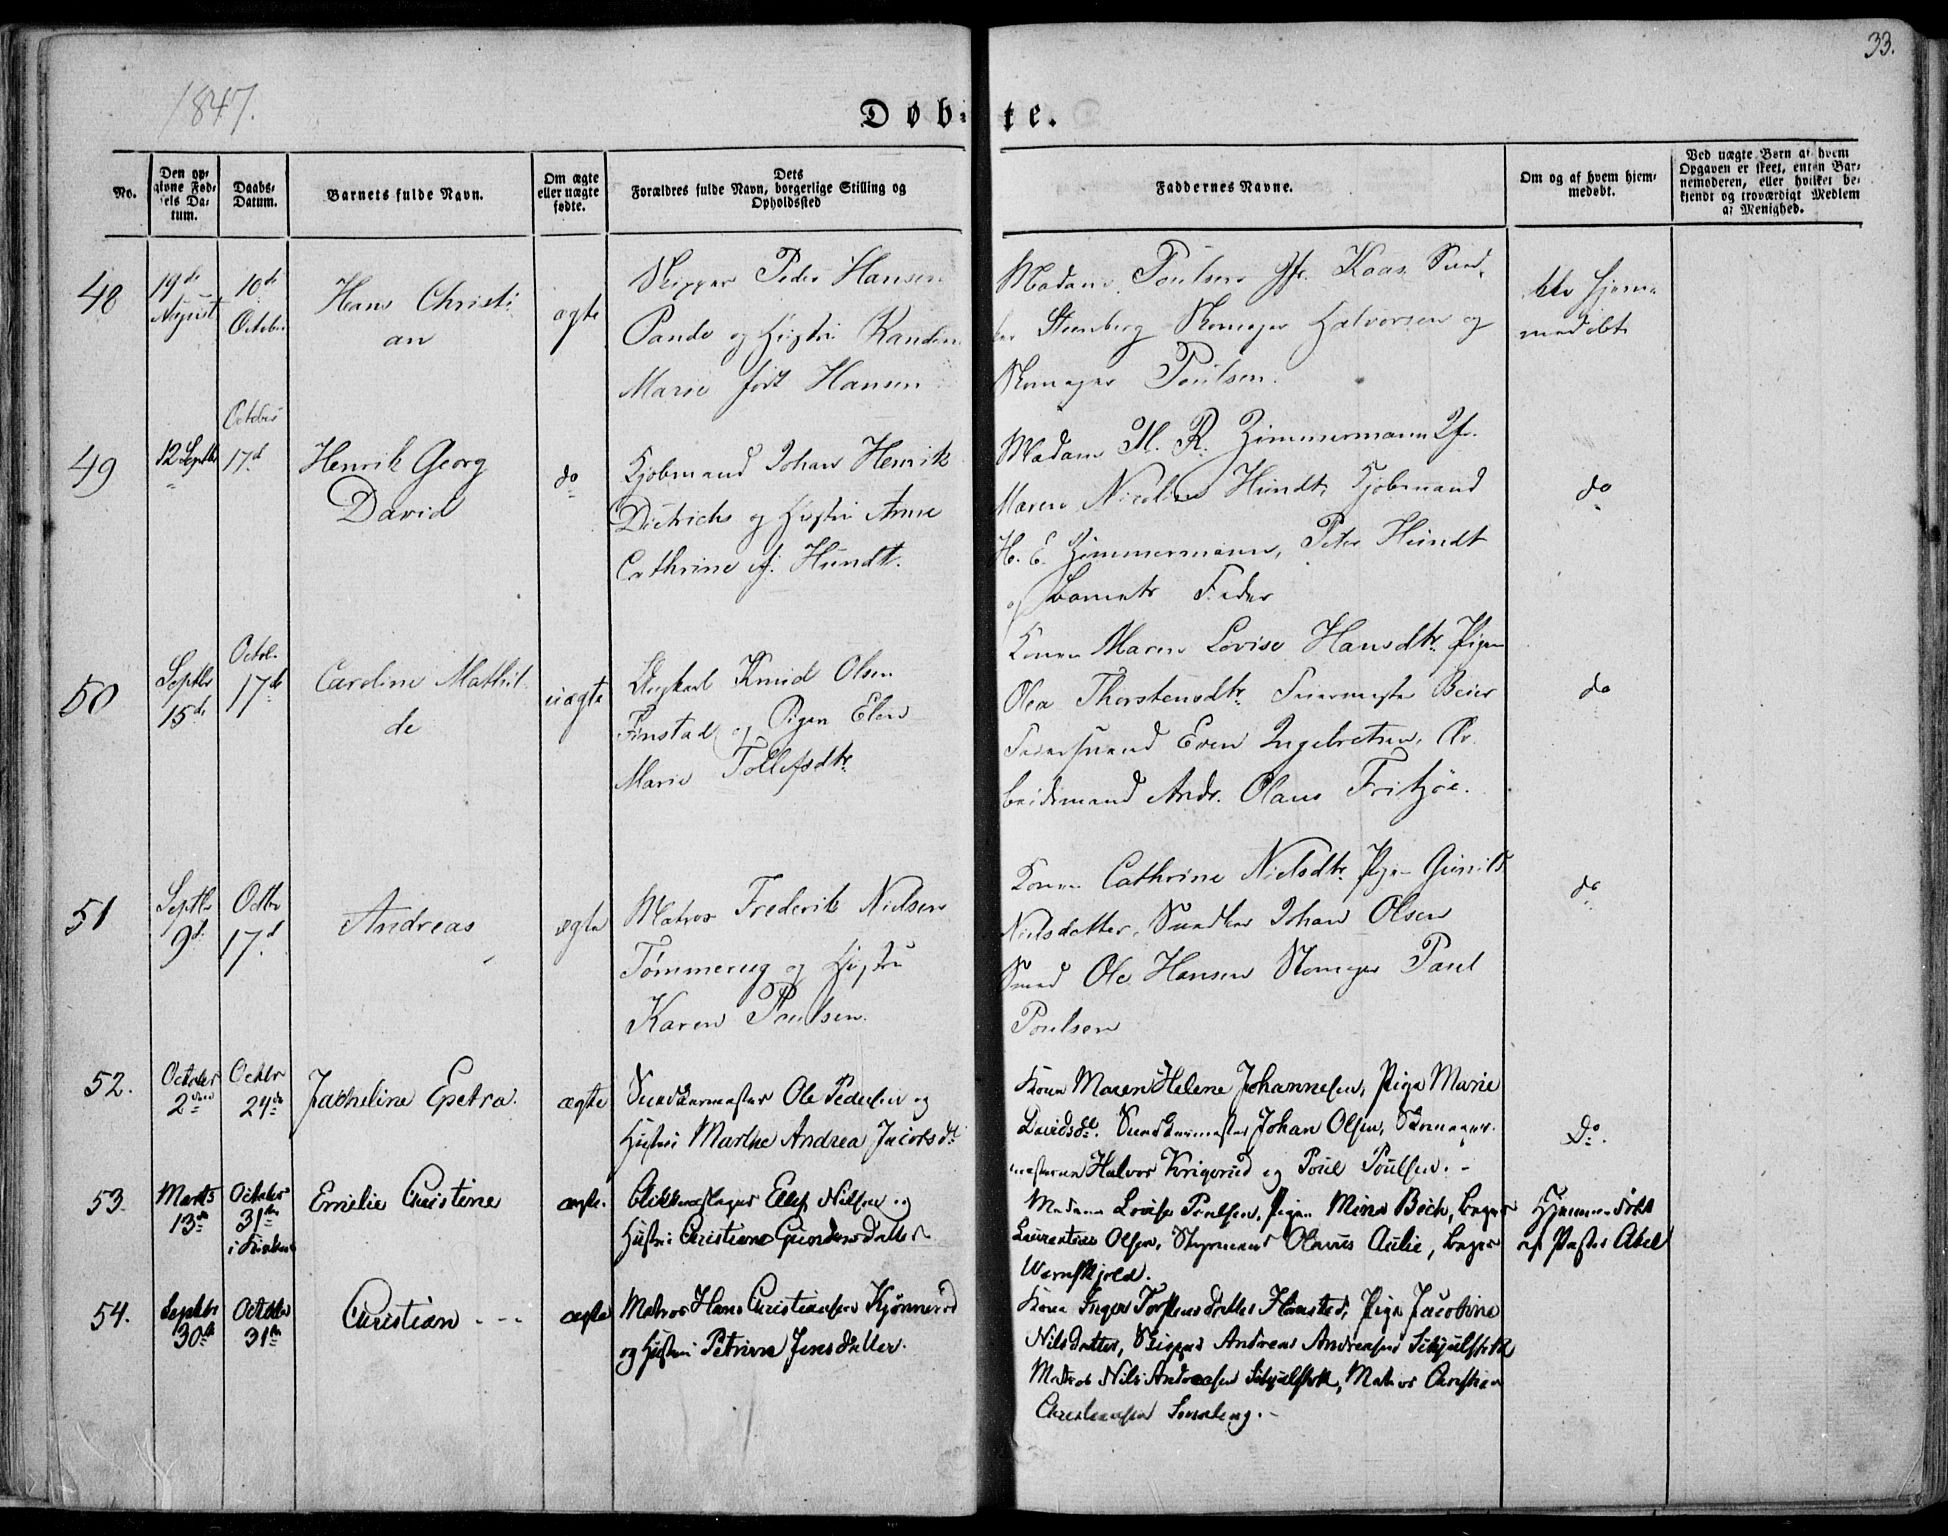 33.
1847.
Døbte.
No.
Den opgivne Fødsels Datum.
Daabs-Datum.
Barnets fulde Navn.
Om ægte eller uægte fødte.
Dets Forældres fulde Navn, borgerlige Stilling og Opholdssted
Faddernes Navne.
Om og af hvem hjemmedøbt.
Ved uægte Børn af hvem Opgaven er skeet, enten Barnemoderen, eller hvilket bekjendt og troværdigt Medlem af Menighed.
48
19de August
10de October
Hans Christi
an
ægte
Skipper Peder Hansen
Pande og Hustru
Marie født Hansen
Madam Poulsen Jfr. Kaas
Steenberg Skomager Halvorsen og
Skomager Poulsen.
ikke hjem
medøbt
49
12 Septbr
October 17d
Henrik Georg
David
do
Kjøbmand Johan Henrik
Dietrichs og Hustru Anne
Cathrine f. Hundt.
Madam M. R. Zimmermann Jfr.
Maren Nicoline Hundt, Kjøbmand
H. E. Zimmermann, Peter Hundt
og Barnets Fader
do
50
Septbr 15de
Octob. 17de
Caroline Mathil
de
uægte
Knud Olsen
Finstad og Pigen Elen
Marie Tollefsdtr.
Konen Maren Lovise Hansdtr. Pigen
Olea Thorstensdtr. Beier
Even Ingebretsen, Ar
beidsmand Andr. Olaus Fritzöe.
do
51
Septbr 9d
Octbr 17.d
Andreas
ægte
Matros Frederik Nielsen
Tømmerug og Hustru
Karen Poulsen.
Konen Cathrine Nielsdtr. Pigen Gunild
Nielsdatter, Johan Olsen
Smed Ole Hansen Skomager Paul
Poulsen
do
52.
October 2den
Octbr 24de
Jacheline Epetra.
ægte
Ole Pedersen og
Hustru Marthe Andrea Jacobsdtr
Kone Maren Helene Johannesen, Pige Marie
Davidsdtr. Johan Olsen, Skomager
mesteren Halvor Krigerud og Poul Poulsen. -
Do.
53.
Marts 13de
October 31te i Kirken
Emelie Christine
ægte.
Blikkenslager Ellef Nilsen og
Hustru Christiane Gundersdatter
Madame Lovise Poulsen, Pigen Mina Boch, Bager
Laurentius Olsen, Styrmand Olavus Aulie, Bager
Wernskjold.
Hjemmedöbt
af Pastor Abel
54.
Septbr 30te
October 31te
Christian - - -
ægte
Matros Hans Christiansen Kjønnerød
og Hustru Petrine Jensdatter.
Kone Inger Torstensdatter Hamsted, Pige Jacobine
Nilsdatter, Skipper Andreas Andreasen
Matros Nils Andreasen Matros Christian
Christiansen